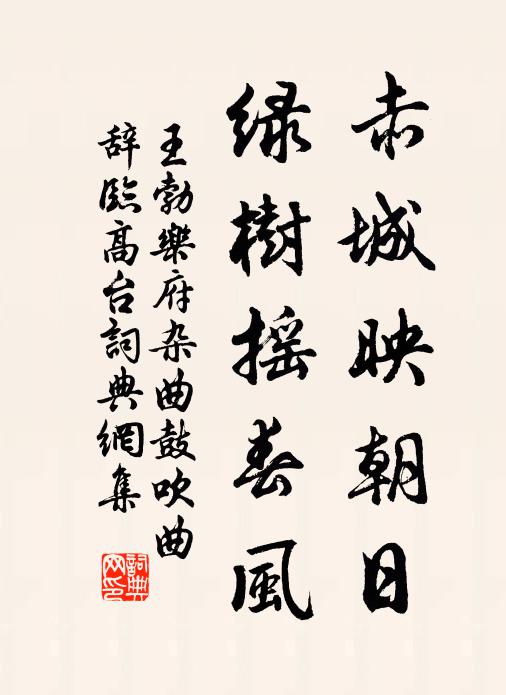 赤城映朝日
緑樹摇春風
王勃樂府杂曲鼓吹曲
辞臨高台詞典網集
詞典
网印